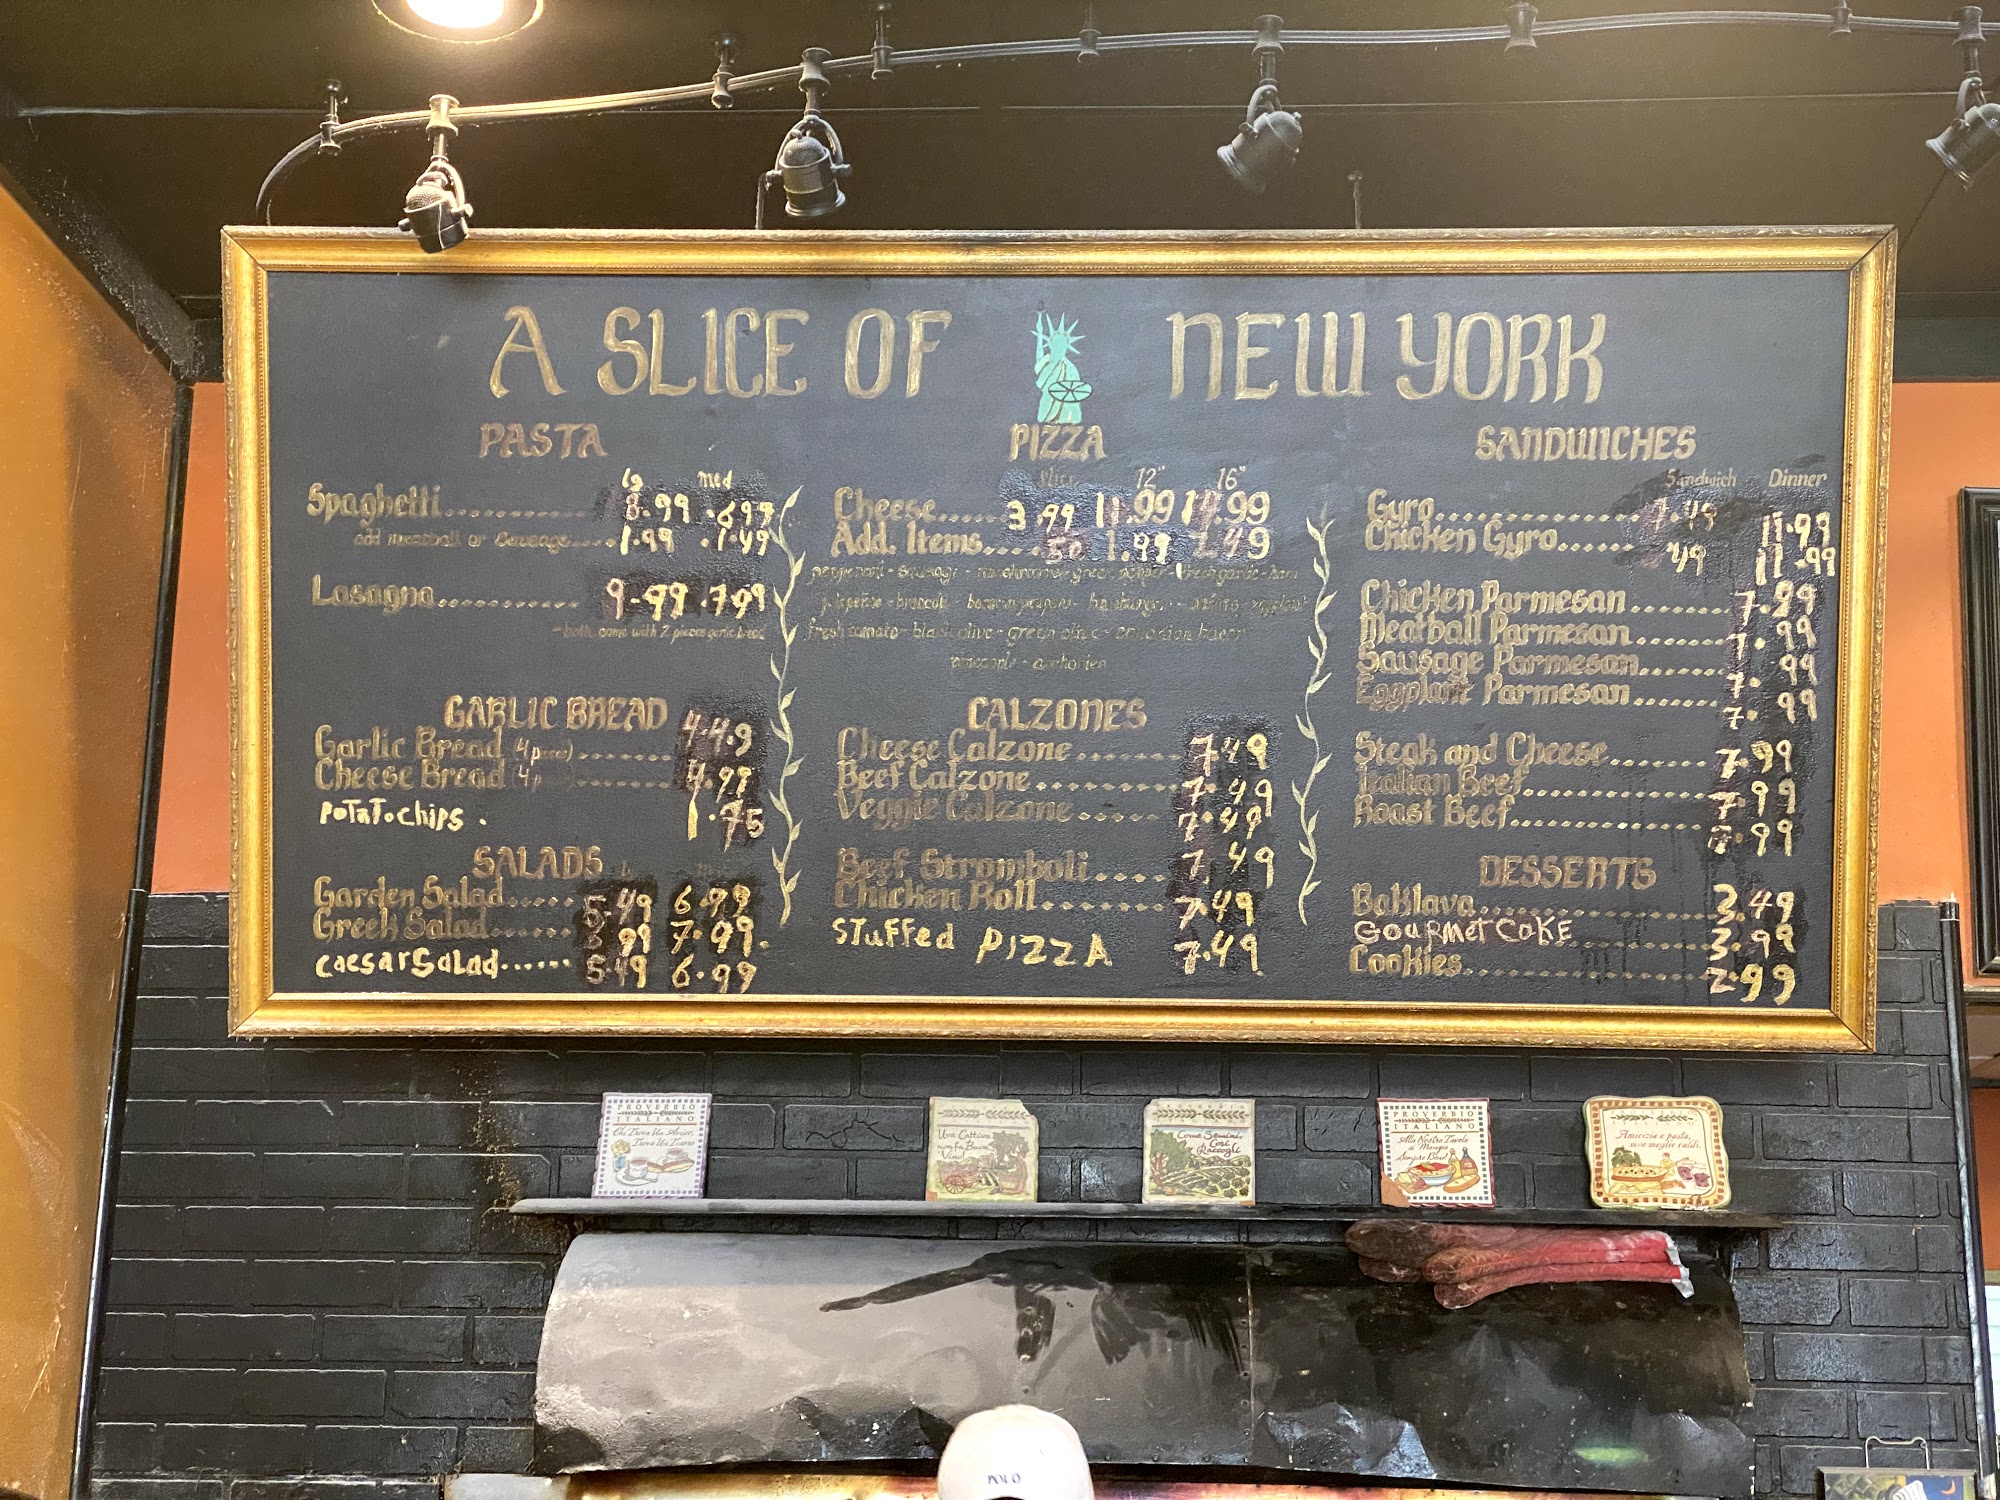 A SLICE OF NEW YORK
PASTA
lg med
Spaghetti............ 8.99 .6.99
add meatball or Beverage......1.99 .1.49
Lasagna............. 9.99 .7.99
-both come with 2 pieces garlic bread
GARLIC BREAD
Garlic Bread (4 piece)......... 4.49
Cheese Bread (4 p.......... 4.99
POTATO CHIPS . 1.75
SALADS
Garden Salad..... 5.49 6.99
Greek Salad..... 99 7.99.
CaesarSalad...... 5.49 6.99
PIZZA
Slice 12" 16"
Cheese..... 3.99 11.99 14.99
Add. Items.... .50 1.99 2.49
pepperoni - sausage - mushroom - green pepper - fresh garlic - ham
jalapenos - broccoli - banana peppers - hamburger - onions - eggplant
fresh tomato - black olive - green olive - canadian bacon
pineapple - anchovies
CALZONES
Cheese Calzone ......... 7.49
Beef Calzone ............ 7.49
Veggie Calzone ......... 7.49
Beef Stromboli......... 7.49
Chicken Roll............ 7.49
STuffed PIZZA 7.49
SANDWICHES
Sandwich Dinner
Gyro.................. 7.49 11.99
Chicken Gyro...... 7.49 11.99
Chicken Parmesan ....... 7.99
Meatball Parmesan....... 7.99
Sausage Parmesan....... 7.99
Eggplant Parmesan ....... 7.99
Steak and Cheese......... 7.99
Italian Beef............... 7.99
Roast Beef............... 7.99
DESSERTS
Baklava................ 3.49
GOURMET CAKE......... 3.99
Cookies................ 2.99
PROVERBIO
ITALIANO
Chi Trova Un Amico,
Trova Un Tesoro
Uva Cattiva
non fa Buon
Vino!
Come Semini,
Cosi
Raccogli
PROVERBIO
ITALIANO
Alla Nostra Tavola
si Mangia
Sempre Bene!
Amicizia e pasta,
sono meglio caldi.
POLO